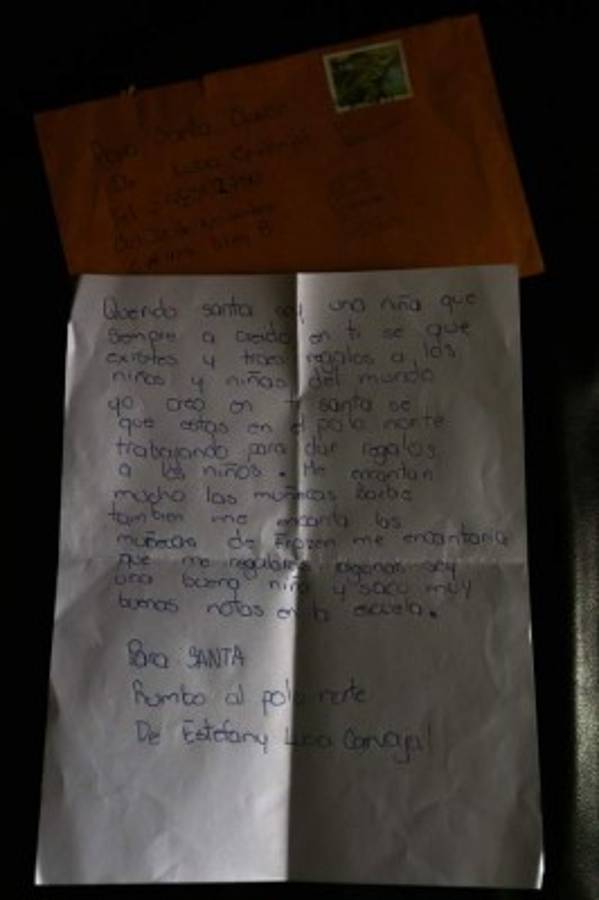 Para Santa Claus
De Luisa Carvajal
Tel
Querido santa soy una niña que
siempre a creido en ti se que
existes y traes regalos a los
niños y niñas del mundo
yo creo en ti santa se
que estas en el polo norte
trabajando para dar regalos
a los niños. Me encantan
mucho las muñecas Barbie
tambien me encanta las
muñecas de Frozen me encantaria
que me regalaras algunas soy
una buena niña y saco muy
buenas notas en la escuela.
Para SANTA
Rumbo al polo norte
De Estefany Luisa Carvajal